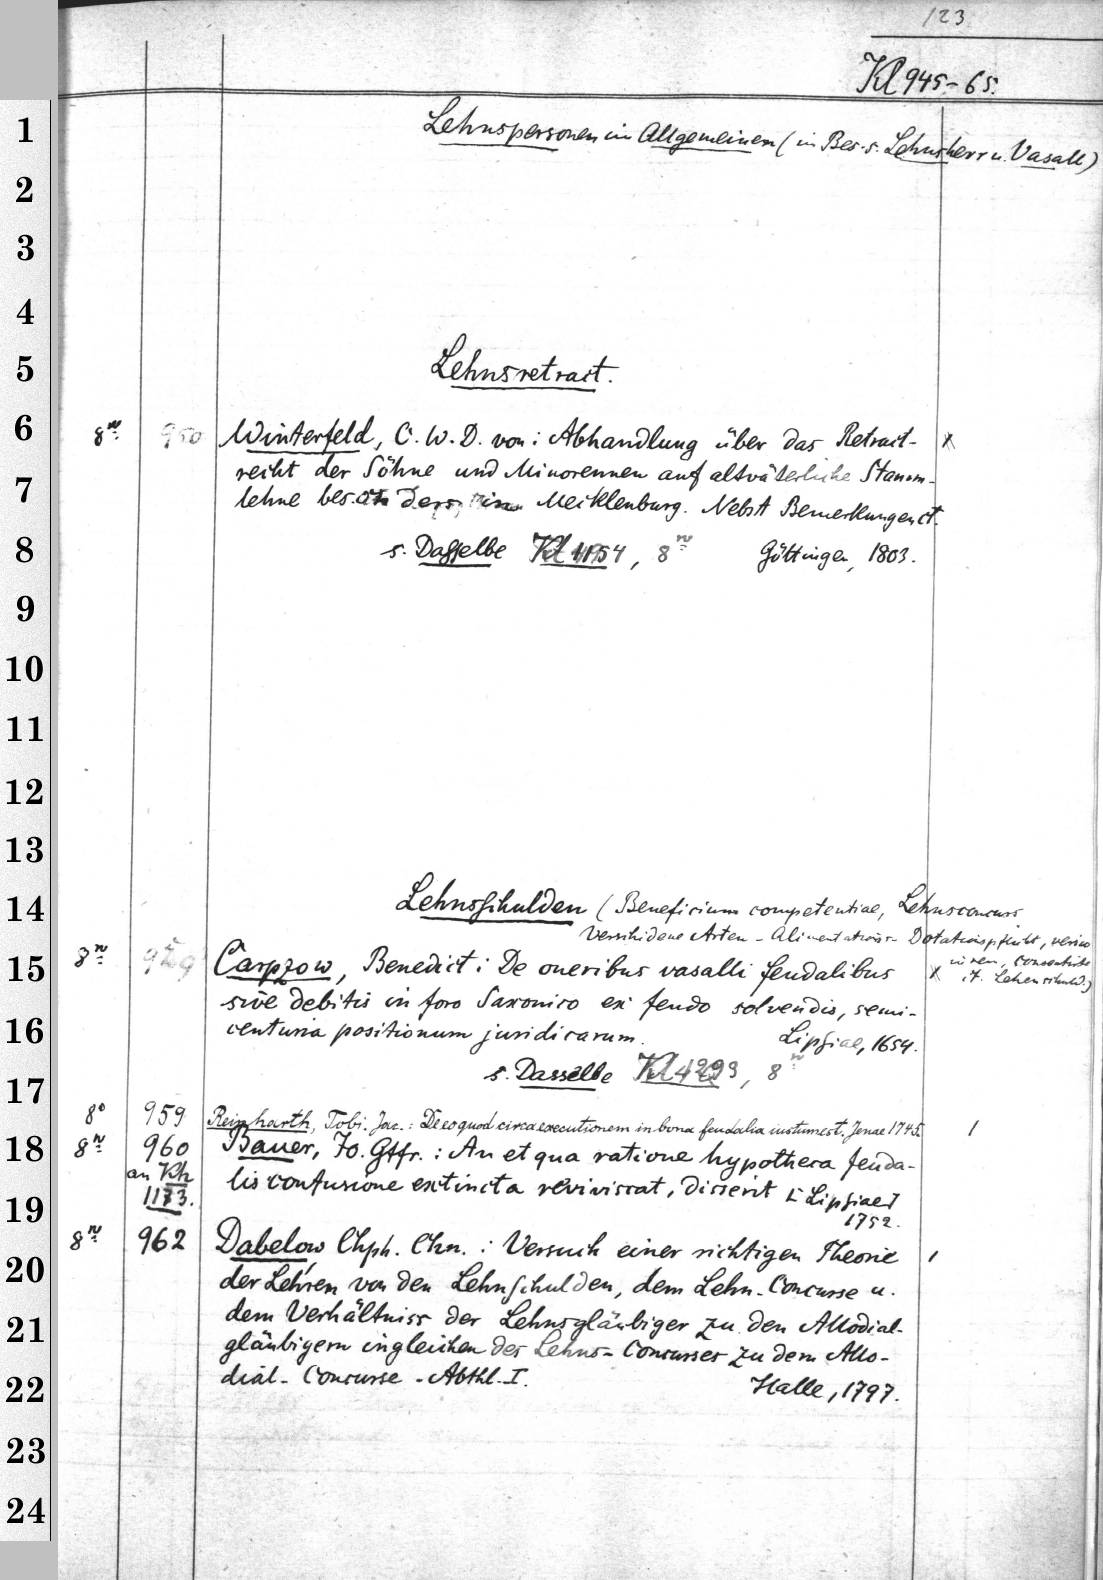 123
Kl 945-65.
1
Lehnspersonen im Allgemeinen (im Bes. s. Lehnsherr u. Vasall)
2
3
4
5
Lehnsretract.
6
8n. 950 Winterfeld, C. W. D. von: Abhandlung über das Retract- x
recht der Söhne und Minorennen auf altväterliche Stamm-
7
lehne bes. in Mecklenburg. Nebst Bemerkungen ct.
8
s. Dasselbe Kl 1954, 8n Göttingen, 1803.
9
10
11
12
13
14
Lehnsschulden (Beneficium competentiae, Lehnsconcurs
Verschidene Arten - Alimentations- Dotationspflicht,
in rem,
15
8n Carpzow, Benedict: De oneribus vasalli feudalibus x it. Lehenschuld.)
sive debitis in foro Saxonico ex feudo solvendis, semi-
16
centuria positionum juridicarum. Lipsiae, 1654.
s. Dasselbe Kl 4293, 8n
17
8° 959 Reinharth, Tobi. Jac.: De eo quod circa executionem in bona feudalia iustum est. Jenae 1745. /
18
8n 960 Bauer, Jo. Gttfr.: An et qua ratione hypotheca feuda-
an Kh
1173.
lis confusione extincta reviviscat, disserit [Lipsiae]
19
1752.
8n. 962 Dabelow Chph. Chn.: Versuch einer richtigen Theorie /
20
der Lehren von den Lehnschulden, dem Lehn-Concurse u.
21
dem Verhältniss der Lehnsgläubiger zu den Allodial-
gläubigern ingleichen des Lehns-Concurses zu dem Allo-
22
dial-Concurse - Abthl. I. Halle, 1797.
23
24